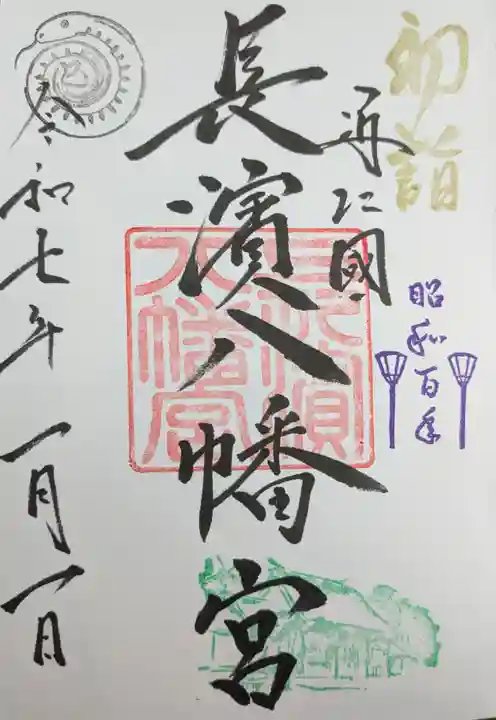 初詣
昭和百年
近江國
長濱八幡宮
長濱八幡宮
巳
令和七年一月一日